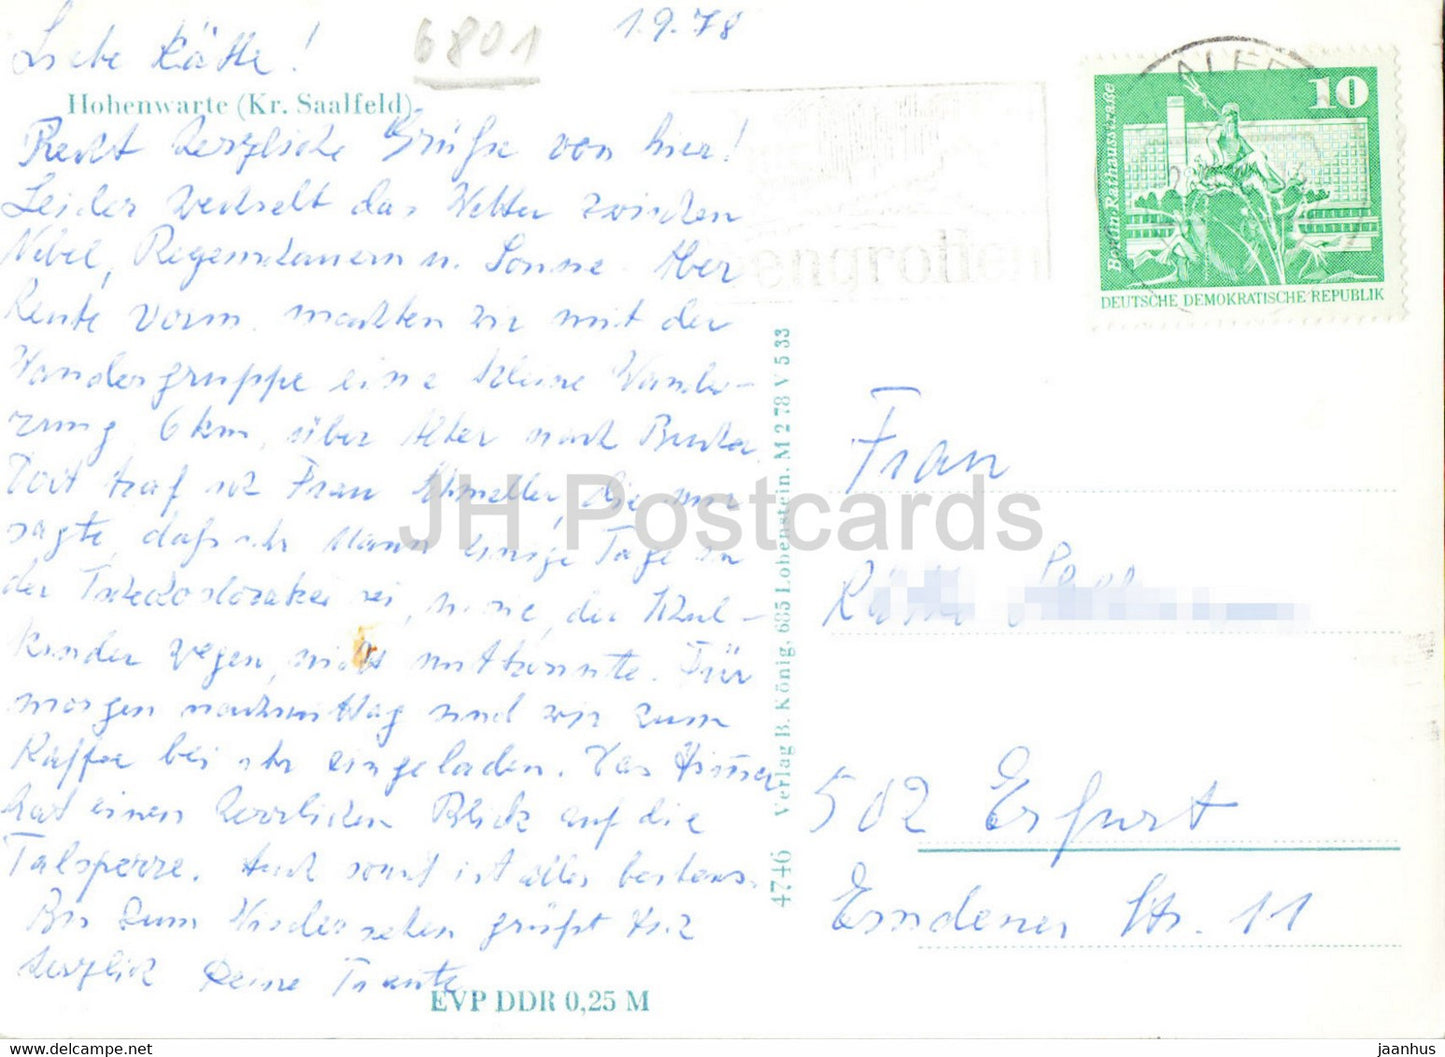 1.9.78
Liebe Käthe!
6801
Hohenwarte (Kr. Saalfeld)
Recht herzliche Grüße von hier!
Leider wechselt das Wetter zwischen
Nebel, Regenschauern u. Sonne. Aber
heute Vorm. machten wir mit der
Wandergruppe eine kleine Wande-
rung, 6 km, über Alter nach
Dort traf ich Frau Schmeller, die mir
sagte, daß ihr Mann einige Tage in
der sei, sie, der Schul-
kinder wegen, nicht mitkonnte. Für
morgen nachmittag sind wir zum
Kaffee bei ihr eingeladen. Das Zimmer
hat einen herrlichen Blick auf die
Talsperre. Auch sonst ist alles bestens.
Bis zum Wiedersehen grüßt Dich
herzlich Deine Traute
EVP DDR 0,25 M
4746 Verlag B. König, 685 Lobenstein. M 2 78 V 5 33
engroßen
10
Berlin-Rathausstraße
DEUTSCHE DEMOKRATISCHE REPUBLIK
Frau
Käthe
502 Erfurt
Emdener Str. 11
JH Postcards
www.delcampe.net
jaanhus